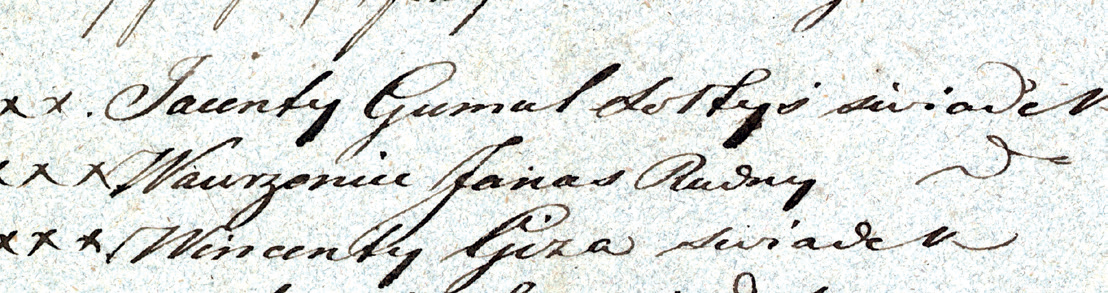 xx. Jacenty Gumul Sołtys swiadek
xxx Wawrzeniec Janas Radny do
xxx Wincenty Giza swiadek